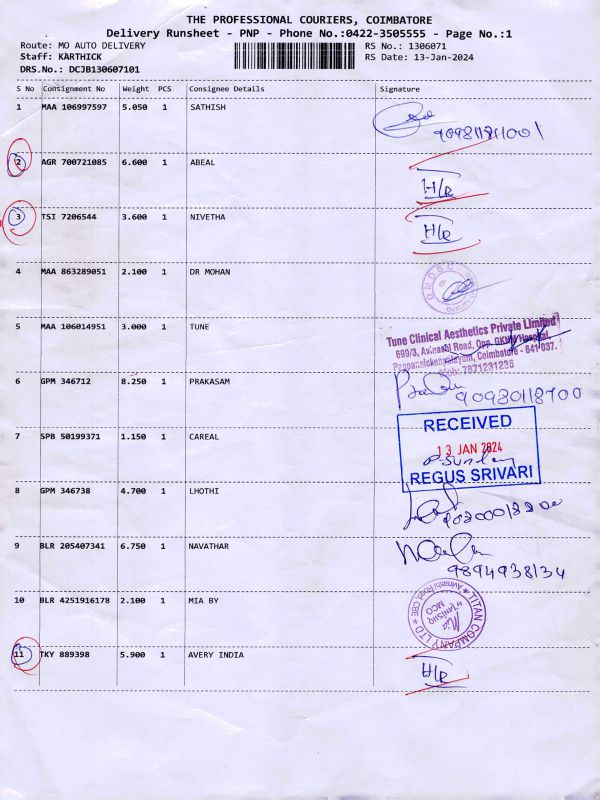 THE PROFESSIONAL COURIERS, COIMBATORE
Delivery Runsheet - PNP - Phone No.:0422-3505555 - Page No.:1
Route: MO AUTO DELIVERY RS No.: 1306071
Staff: KARTHICK RS Date: 13-Jan-2024
DRS.No.: DCJB130607101
S No Consignment No Weight PCS Consignee Details Signature
1 MAA 106997597 5.050 1 SATHISH
2 AGR 700721085 6.600 1 ABEAL
H/R
3 TSI 7206544 3.600 1 NIVETHA
H/R
4 MAA 863289051 2.100 1 DR MOHAN
5 MAA 106014951 3.000 1 TUNE
Tune Clinical Aesthetics Private Limited
699/3, Avinashi Road, Opp. GKNM Hospital,
Pappanaickenpalayam, Coimbatore - 641 037.
Mob: 7871231235
6 GPM 346712 8.250 1 PRAKASAM
90930118700
7 SPB 50199371 1.150 1 CAREAL
RECEIVED
13 JAN 2024
REGUS SRIVARI
8 GPM 346738 4.700 1 LHOTHI
9 BLR 205407341 6.750 1 NAVATHAR
9894938134
10 BLR 4251916178 2.100 1 MIA BY
TITAN COMPANY LTD
Avinashi Road, CBE
Mia
by TANISHQ
MCO
11 TKY 889398 5.900 1 AVERY INDIA
H/R